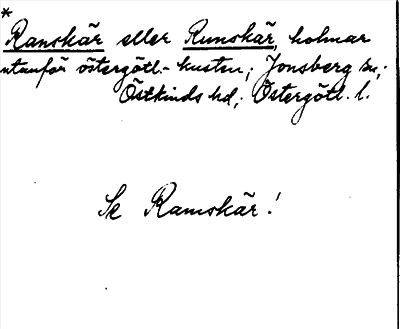 *
Ranskär eller Runskär, holmar
utanför östergötl.-kusten; Jonsberg sn;
Östkinds hd; Östergötl. l.
Se Ramskär!